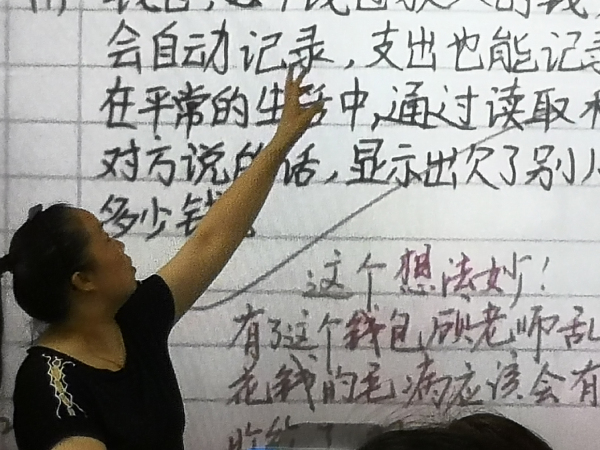 的钱
会自动记录,支出也能记录
在平常的生活中,通过读取
对方说的话,显示出欠了别人
多少钱。
这个想法妙!
有了这个钱包,顾老师乱
花钱的毛病应该会有